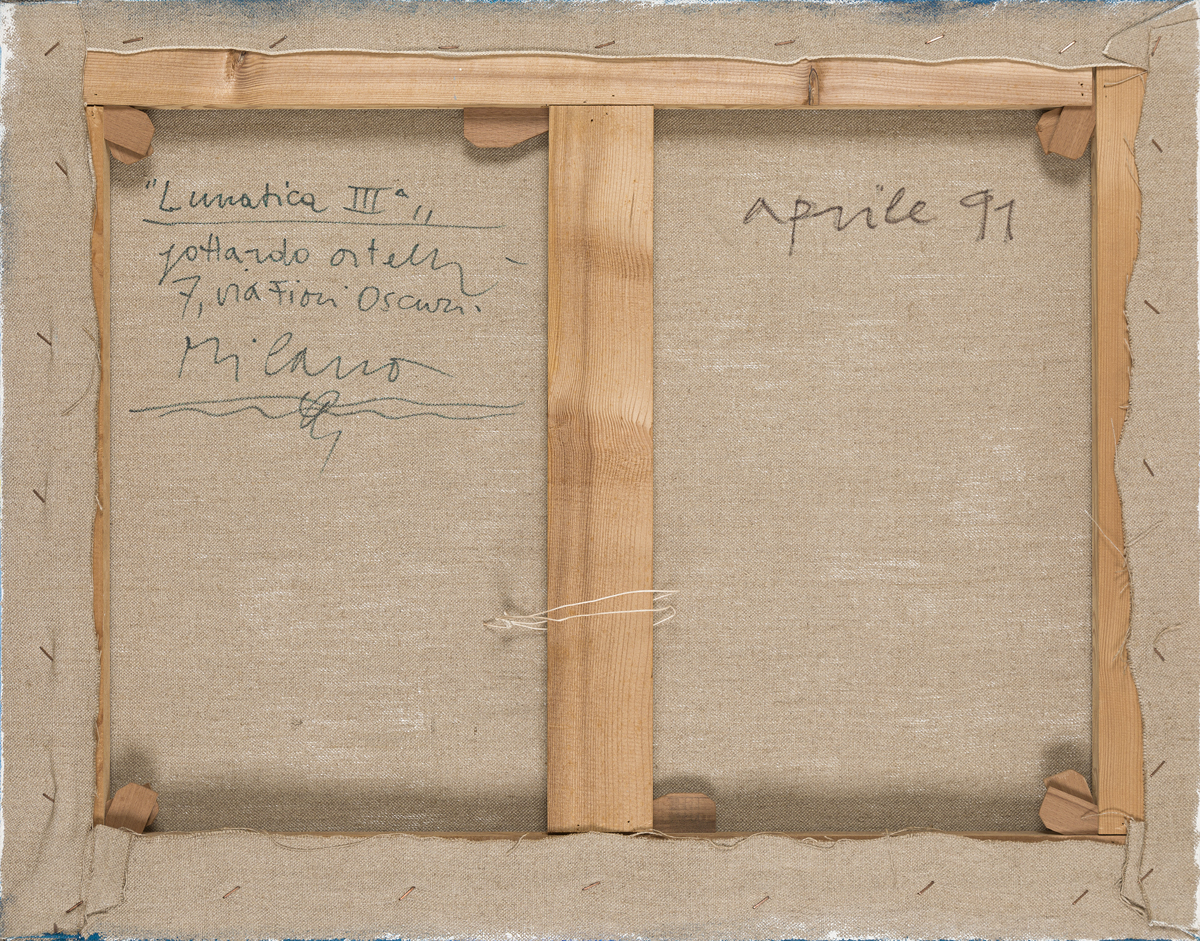 "Lunatica IIIª„
gottardo ortelli -
7, via Fiori Oscuri.
Milano
aprile 91